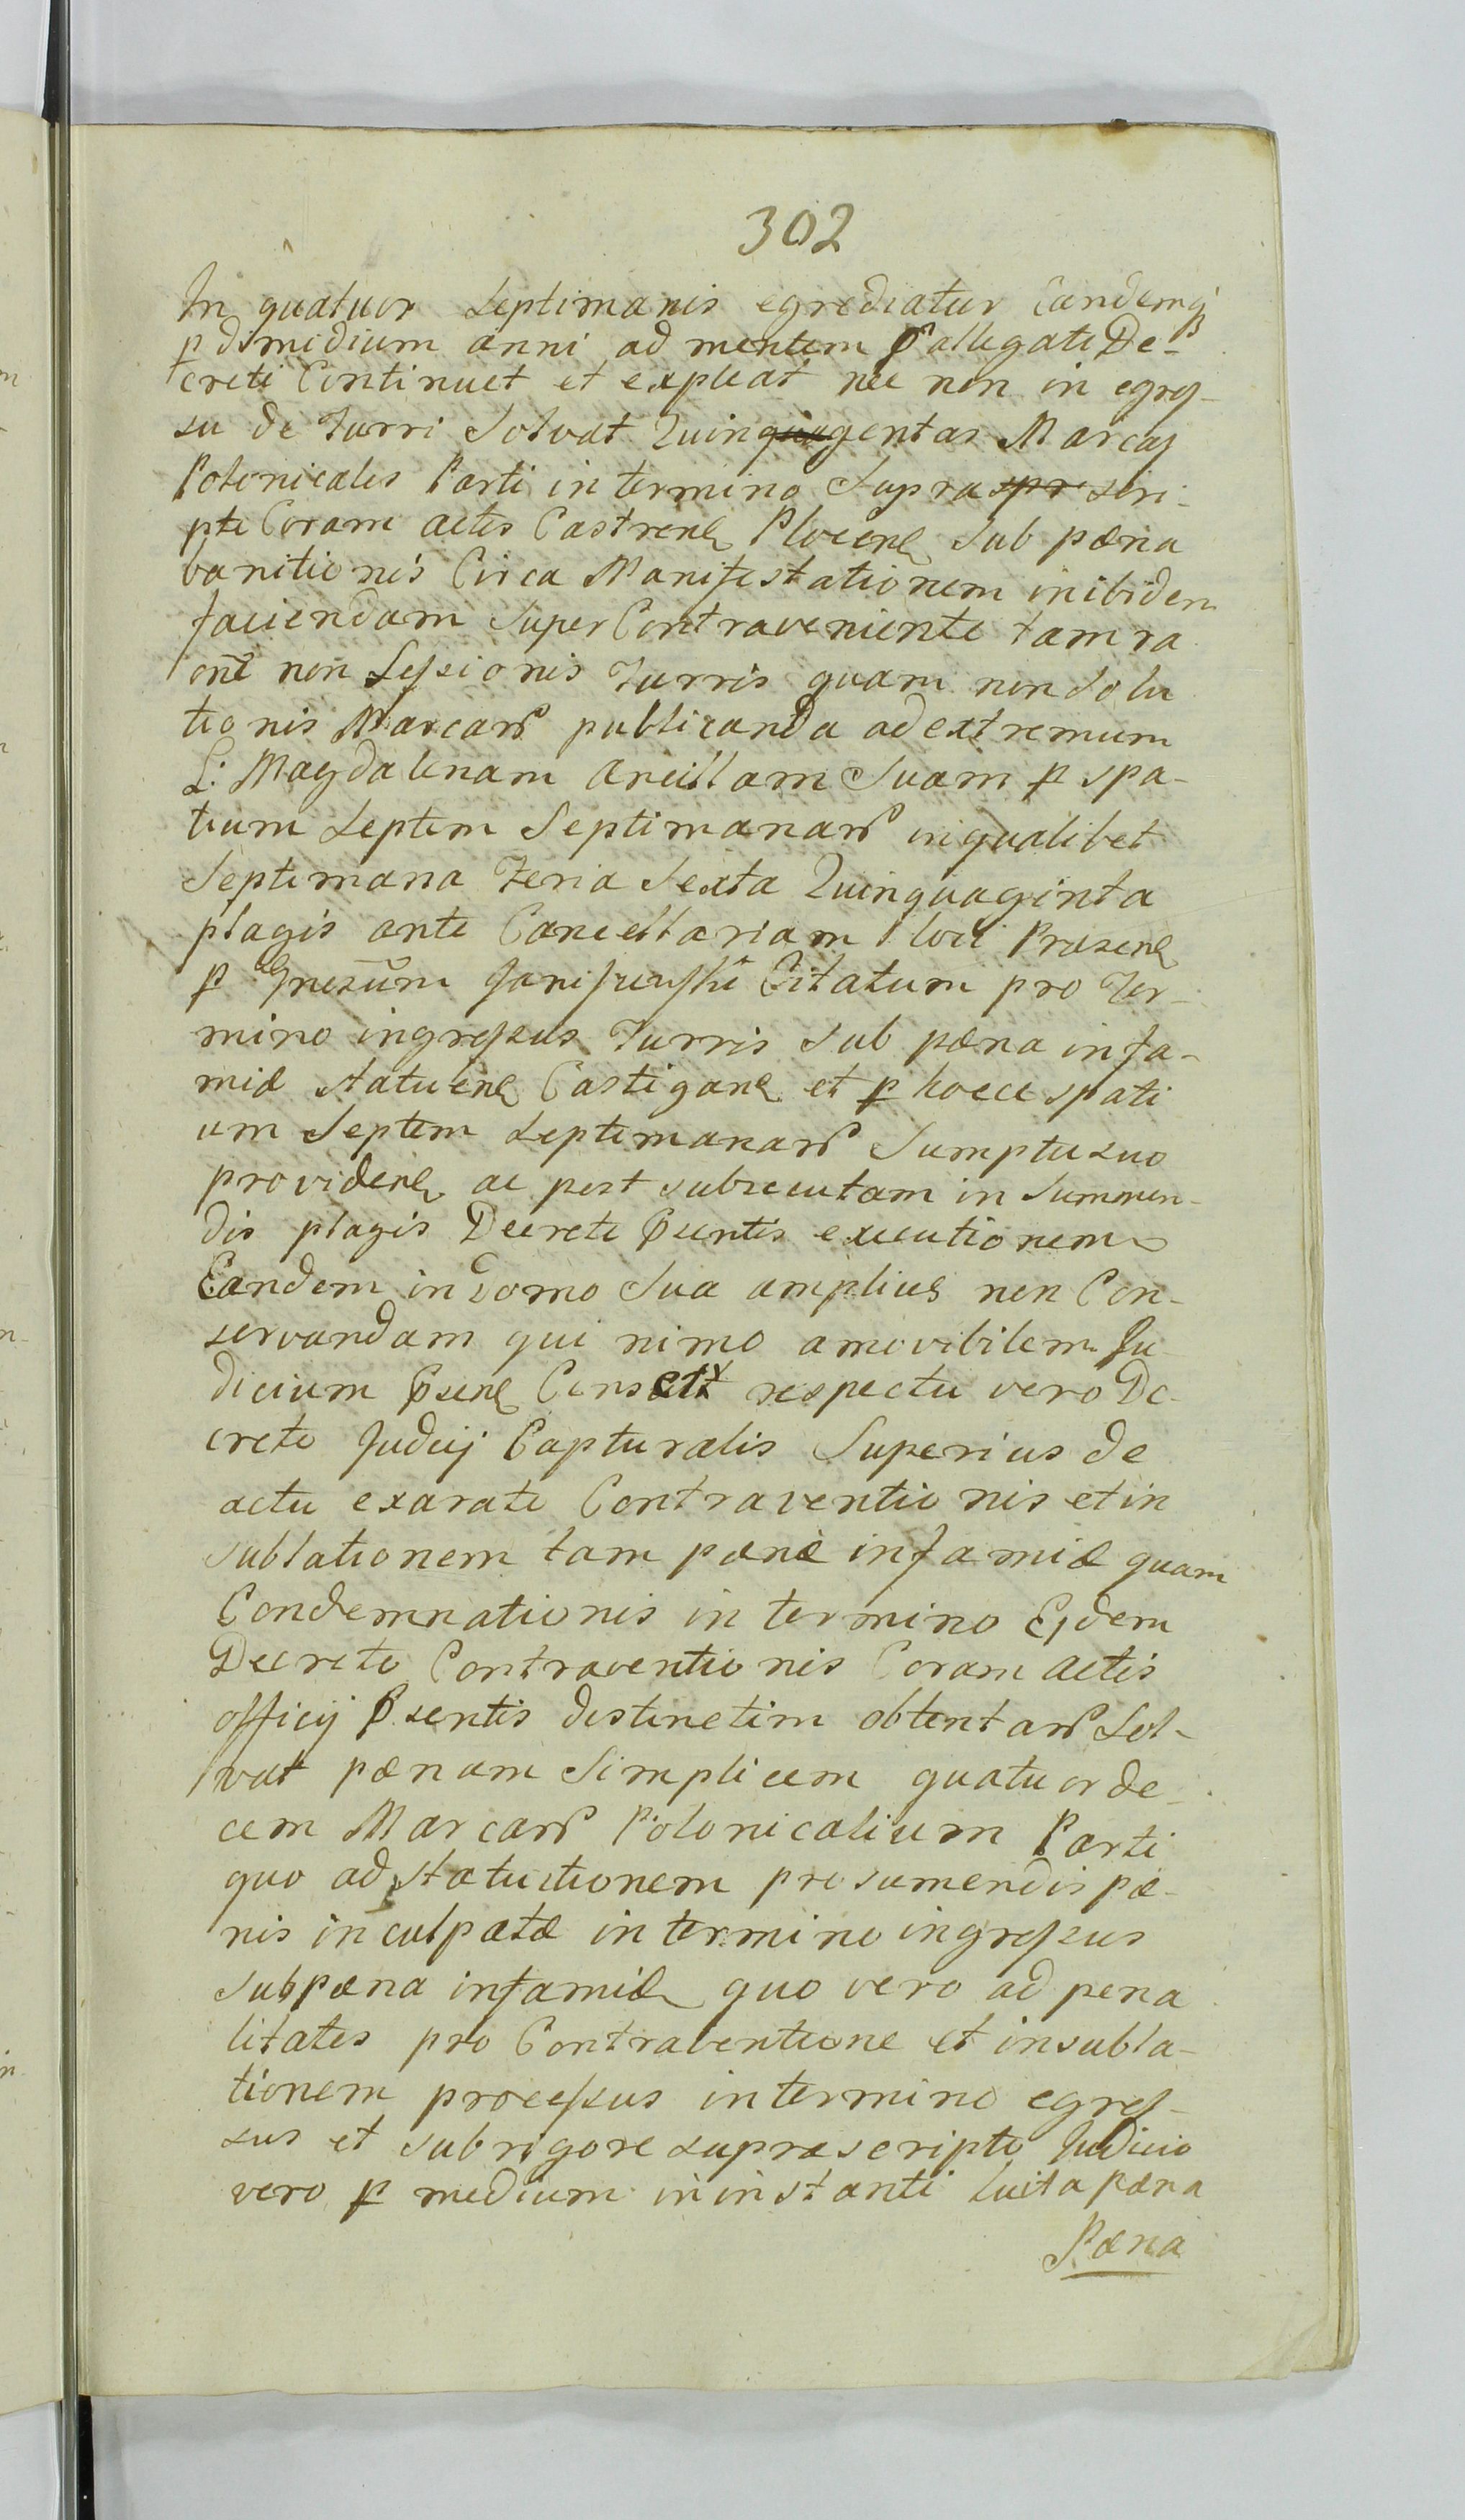 302
In quatuor Septimanis egrediatur Eandemq
p dimidium anni ad mentem Pallegati De-
creti Continuet et expleat nec non in egres-
su de Turri Solvat Quinquagentas Marcas
Polonicales Parti in termino Supraspr scri-
pti Coram actis Castren Plocen Sub pæna
banitionis Circa Manifestationem inibidem
faciendam Super Contraveniente tam ra
one non Sessionis Turris quam non Solu
tionis Marcar publicanda ad extremum
L: Magdalenam Ancillam Suam p spa-
tium Septem Septimanar in qualibet
Septimana Feria Sexta Quinquaginta
plagis ante Cancellariam loci Præsen
p Citatum pro Ter-
mino ingressus Turris sub pæna infa-
miæ statuen Castigan et p hocce spati
um Septem Septimanar Sumptu suo
providen ac post subsecutam in Summen-
dis plagis Decreti Psentis executionem
Eandem in domo Sua amplius non Con-
servandam qui nimo amovibilem Ju-
dicium Psens Censet respectu vero De-
creto Judicij Capturalis Superius de
actu exarate Contraventionis et in
sublationem tam pænæ infamiæ quam
Condemnationis in termino Ejdem
Decreto Contraventionis Coram Actis
officij Psentis distinctim obtentar Sol-
vat pænam Simplicem quatuor de-
cem Marcar Polonicalium Parti
quo ad statuitionem pro sumendis pæ-
nis inculpatæ in termino ingressus
sub pæna infamiæ quo vero ad pena
litates pro Contraventione et in subla-
tionem processus in termino egres-
sus et sub rigore supra scripto Judicio
vero p medium in instanti luita pæna
Pæna